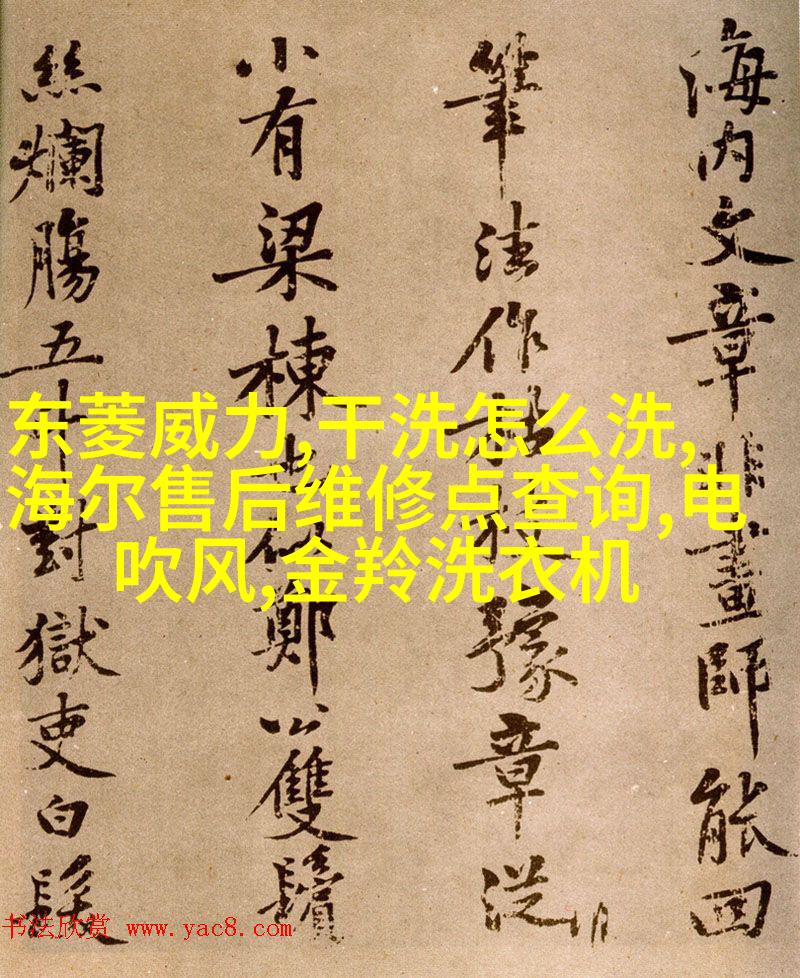 海内文章非畫師能回
筆法作松枝豫章從
小有梁棟也似鄭公雙鬢
絲爛腸五斗對獄吏白髮
东菱威力,干洗怎么洗,
海尔售后维修点查询,电
吹风,金羚洗衣机
书法欣赏 www.yac8.com